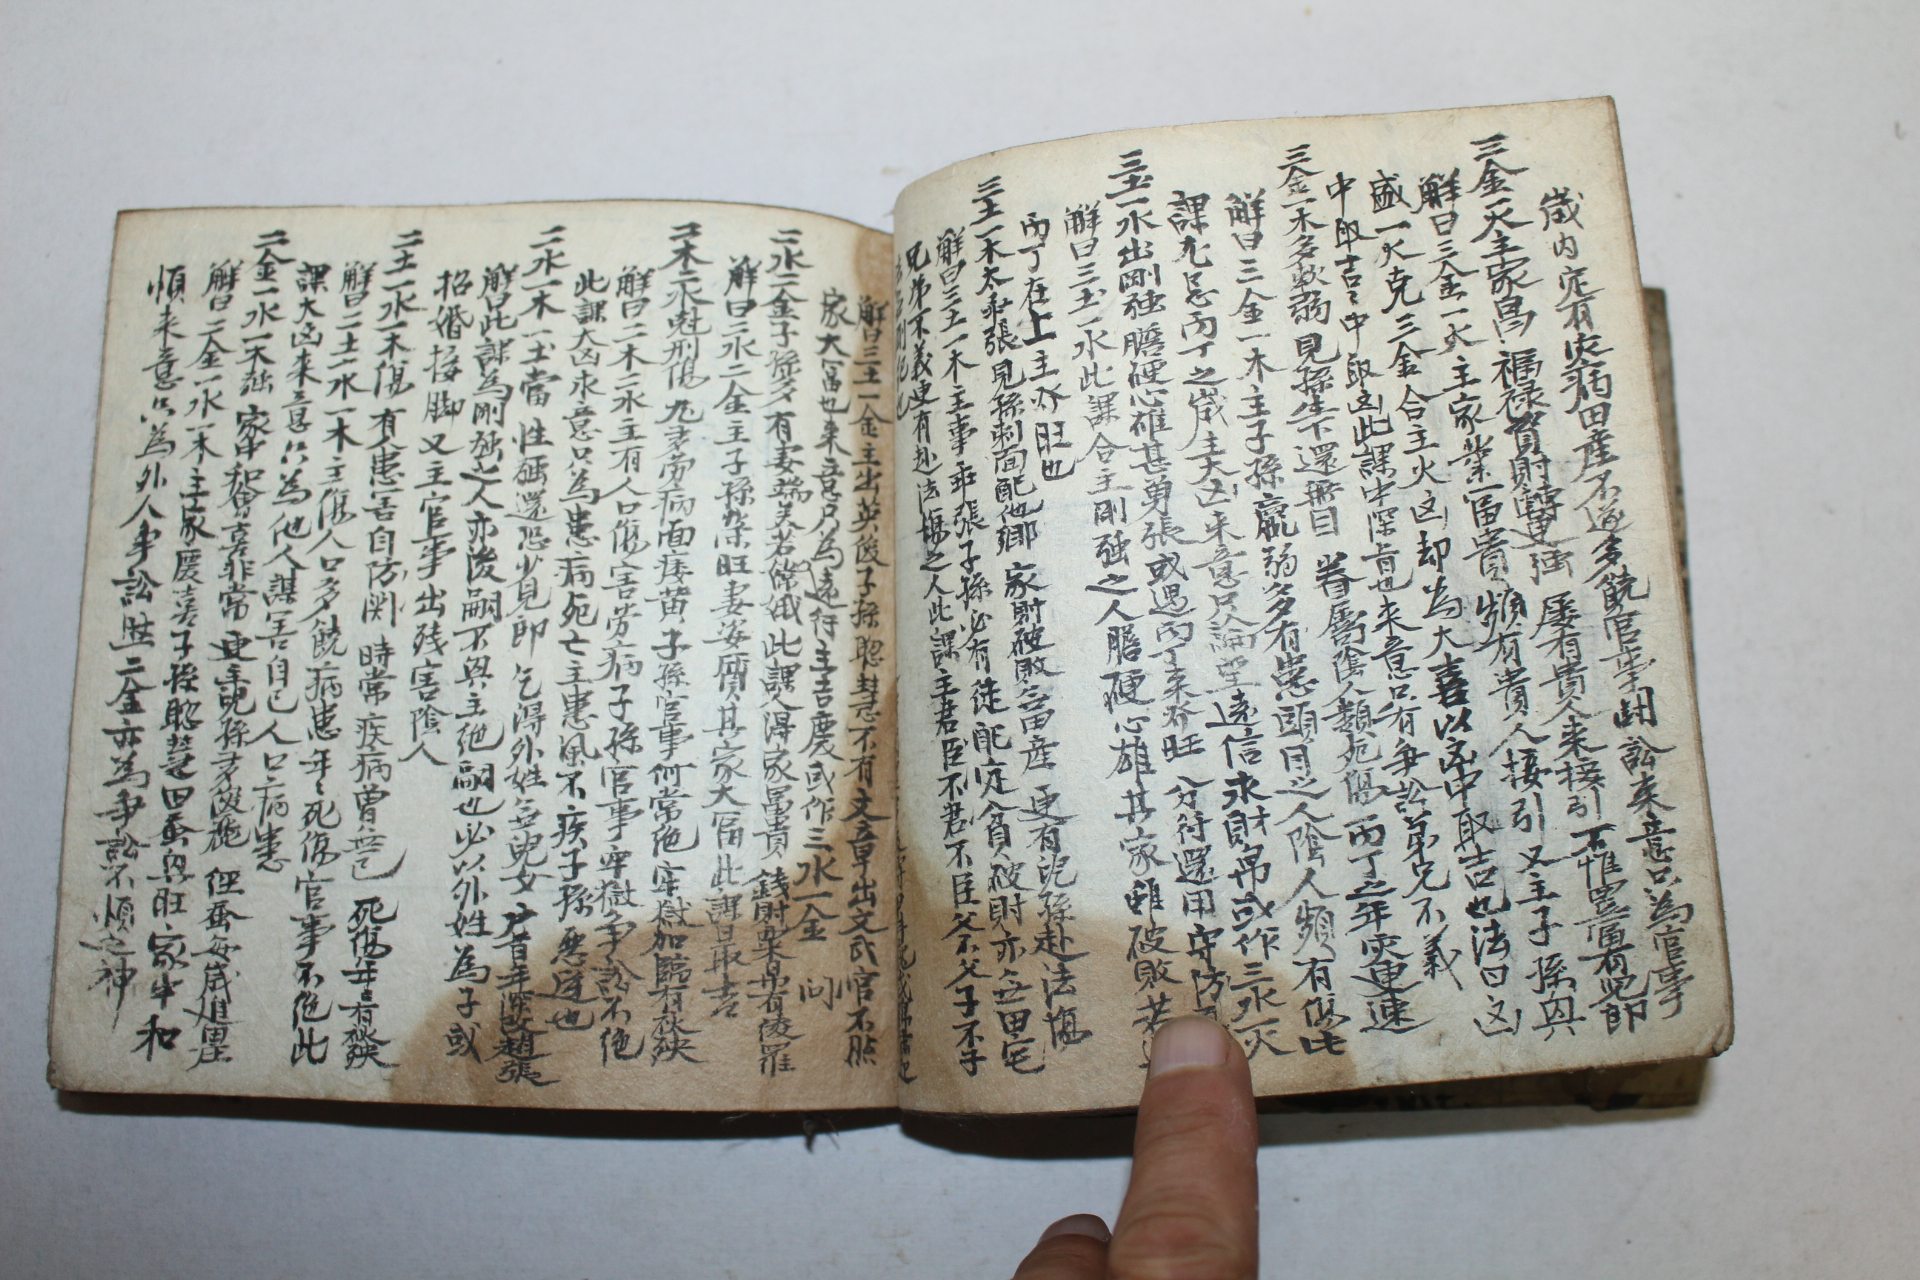 歲內定有灾病田産不遂多饒官事鬪訟来意只為官事
三金一火主家昌 福禄資財轉更強 屡有貴人来接引 不惟豊富有児郎
解曰三金一火主家業富貴頻有貴人接引又主子孫與
盛一火克三金合主火凶却為大喜以凶中取吉也法曰凶
中取吉吉中取凶此課中深肯也来意只有争訟弟兄不義
三金一木多軟弱 見孫生下還無目 眷属陰人類死傷 丙丁之年灾更速
解曰三金一木主子孫羸弱多有患頭目之人陰人頻有傷此
課尤忌丙丁之歲主大凶来意只論望遠信求財帛或作三水一火
三土一水出剛強 膽硬心雄甚勇張 或遇丙丁来夲旺 分符還用守防
解曰三土一水此課合主剛強之人膽硬心雄其家雖破敗若
丙丁在上主夲旺也
三土一木太乖張 見孫刺面配他郷 家財破敗無田産 更有児孫赴法傷
解曰三土一木主事乖張子孫必有徒配定貧破財亦無田宅
兄弟不義更有赴法傷之人此課主君臣不君不臣父不父子不子
解曰三土一金主出英俊子孫聡慧不有文章出文武官不然
家大富也来意只為遠行主吉慶或作三水一金 问
二水二金子孫多 有妻端美若嫦娥 此課人得家昌貴 錢財粟帛有凌羅
解曰二水二金主子孫榮旺妻姿質其家大富此課最吉
二木二水魁刑傷 九多劳病面痿黄 子孫官事何常絶 牢獄加臨有秋殃
解曰二木二水主有人口傷害劳病子孫官事牢獄争訟不絶
此課大凶求意只為患病死亡主患風不疾子孫惡逆也
二水一木一土當 性強還恐少見郎 乞得外姓無児女 百年深改趙張
解曰此課為剛強之人亦後嗣不與主絶嗣也必以外姓為子或
招婚接脚又主官事出残害陰人
二土一水一木傷 有人患害自防関 時常疾病曽無已 死傷年有秋殃
解曰二土一水一木主傷人口多饒病患年年死傷官事不絶此
課大凶来意只為他人謀害自己人口病患
二金一水一木強 家中和會喜非常 更主児孫多俊施 但蚕每歲進田庄
解曰二金一水一木主家慶喜子孫聡慧田蚕興旺家中和
順来意只為外人事訟胜二金亦為争訟不順之神